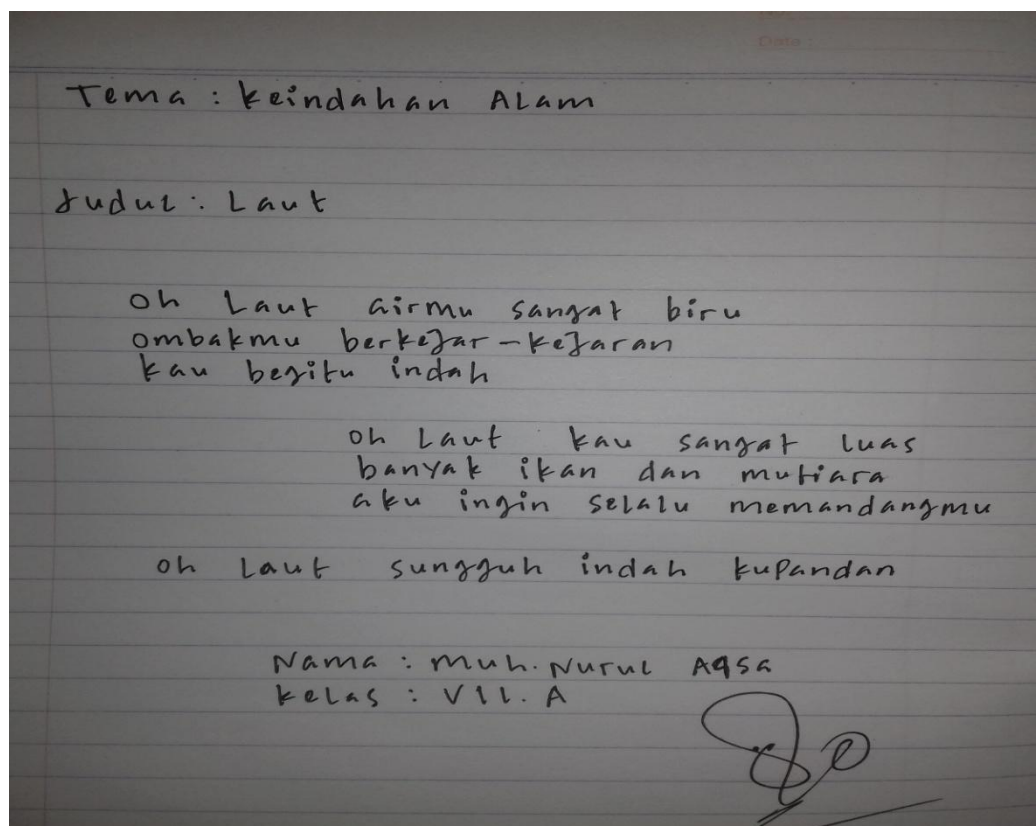 Date :
Tema : Keindahan Alam
Judul : Laut
oh Laut airmu sangat biru
ombakmu berkejar-kejaran
kau begitu indah
oh Laut kau sangat luas
banyak ikan dan mutiara
aku ingin selalu memandangmu
oh Laut sungguh indah kupandan
Nama : Muh. Nurul Aqsa
Kelas : VII. A
80